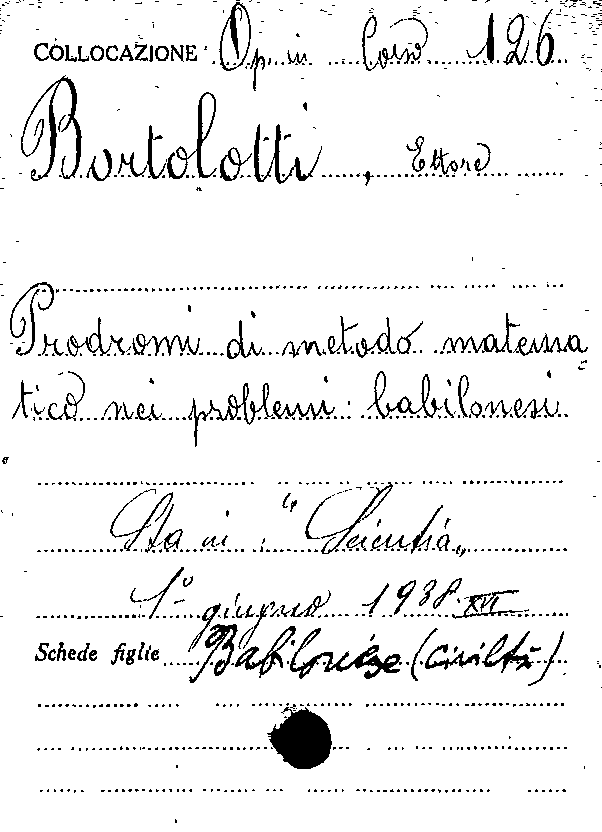 COLLOCAZIONE Op. in Cons 126
Bortolotti, Ettore
Prodromi di metodo matema
tico nei problemi babilonesi
Sta in: "Scientia"
1° giugno 1938 XVI
Schede figlie Babilonese (civiltà)